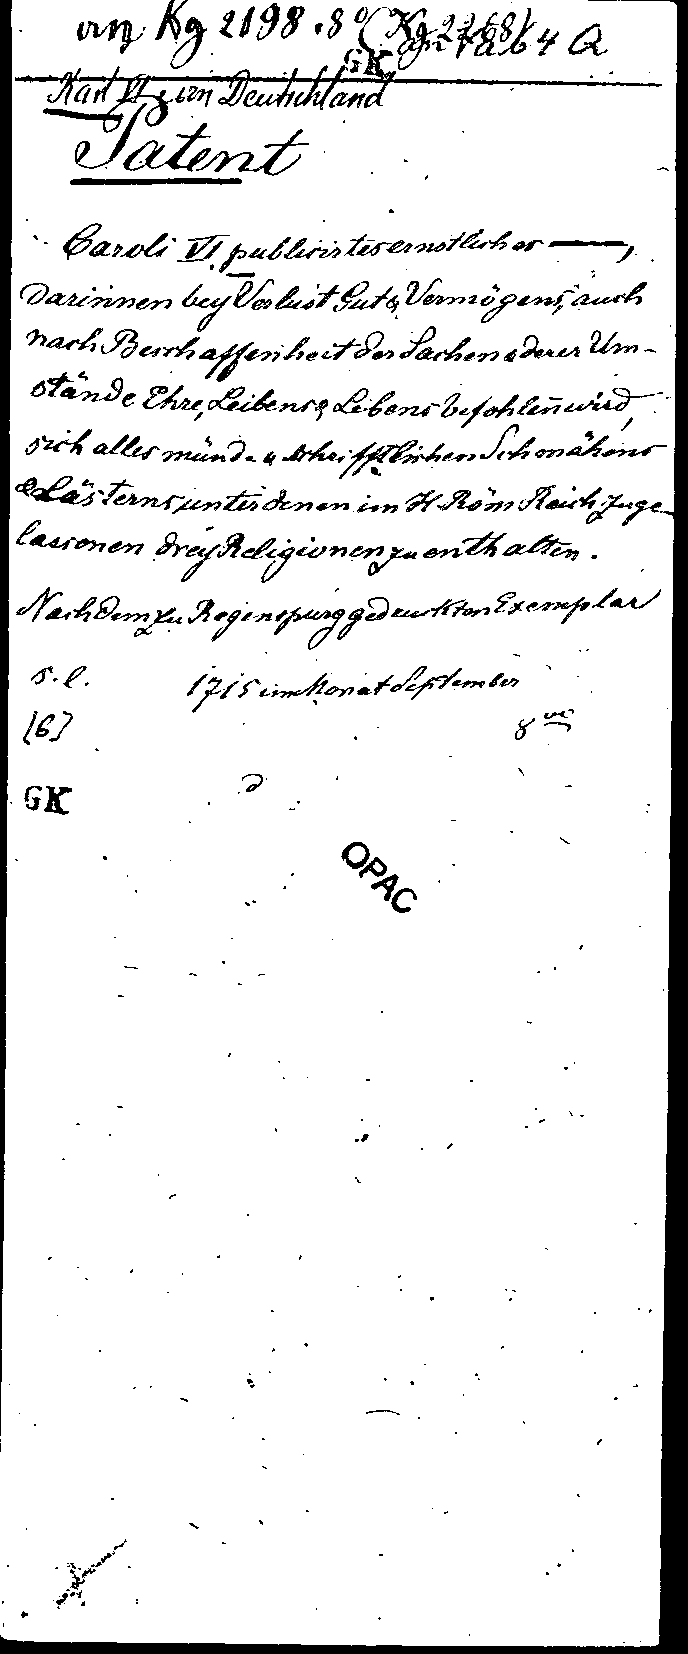 an Kg 2198.8°
4 Q
GK
Karl VI von Deutschland
Patent
Caroli VI publicirtes ernstliches —,
darinnen bey Verlust Gut & Vermögens, auch
nach Beschaffenheit der Sachen & derer Um-
stände Ehre, Leibens & Lebens befohlen̄ wird,
sich alles münd- u schrifftlichen Schmähens
& Lästerns unter denen im H. Röm Reich zuge-
lassenen drey Religionen zu enthalten.
Nach dem zu Regenspurg gedruckten Exemplar
s. l. 1715 im Monat September
[6] 8vo
GK d
OPAC